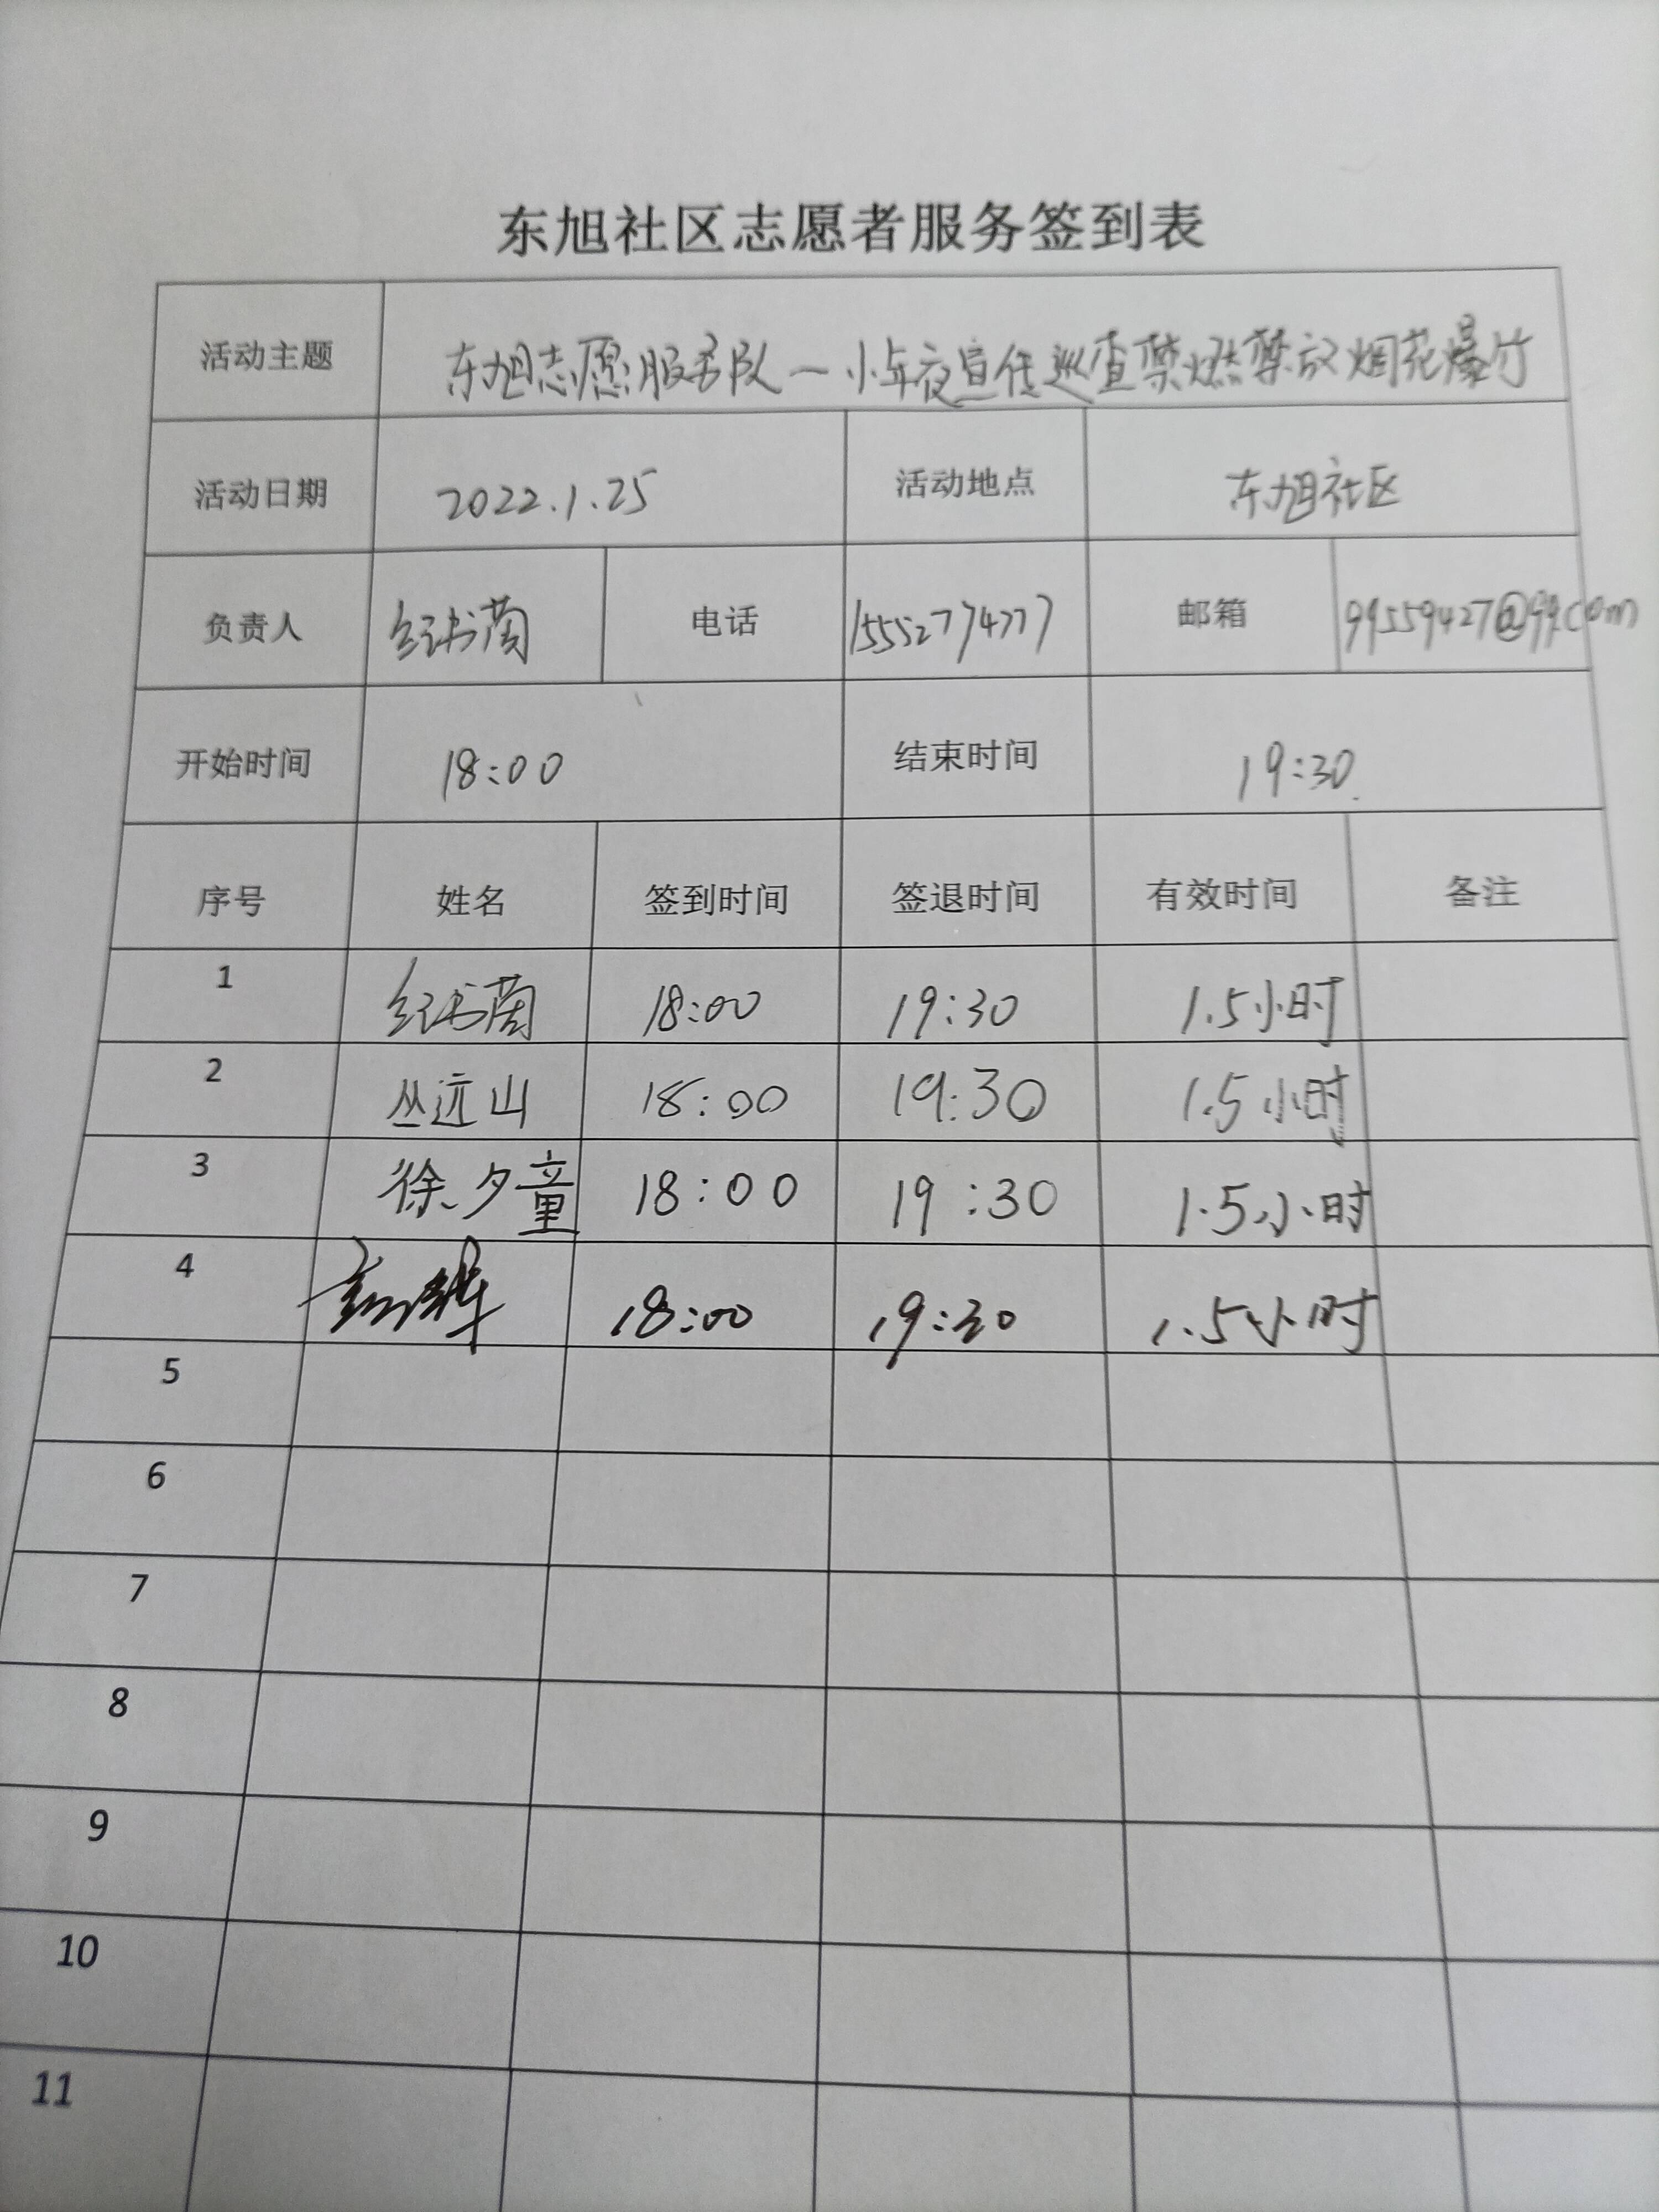 东旭社区志愿者服务签到表
活动主题 东旭志愿服务队—小年夜宣传巡查禁燃禁放烟花爆竹
活动日期 2022.1.25 活动地点 东旭社区
负责人 纪书菌 电话 15552774777 邮箱 99559427@qq.com
开始时间 18:00 结束时间 19:30
序号 姓名 签到时间 签退时间 有效时间 备注
1 纪书菌 18:00 19:30 1.5小时
2 丛远山 18:00 19:30 1.5小时
3 徐夕童 18:00 19:30 1.5小时
4 18:00 19:30 1.5小时
5
6
7
8
9
10
11